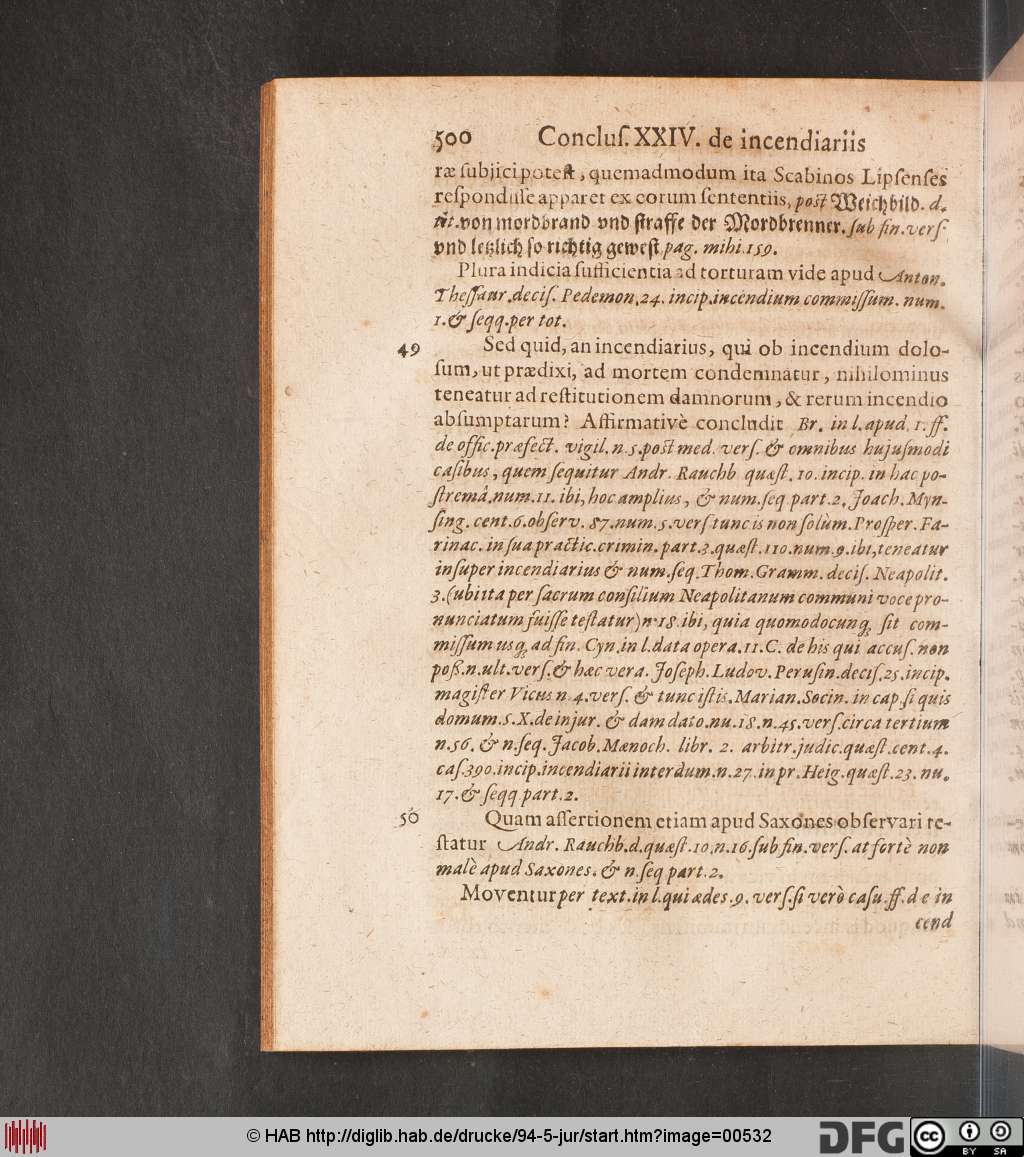 500 Concluſ. XXIV. de incendiariis
ræ ſubjici poteſt, quemadmodum ita Scabinos Lipſenſes
reſpondiſſe apparet ex eorum ſententiis, poſt Weichbild. d.
tit. von mordbrand vnd ſtraffe der Mordbrenner. ſub fin. verſ.
vnd letzlich ſo richtig geweſt pag. mihi. 159.
Plura indicia ſufficientia ad torturam vide apud Anton.
Theſſaur. deciſ. Pedemon. 24. incip. incendium commiſſum. num.
1. & ſeqq. per tot.
49 Sed quid, an incendiarius, qui ob incendium dolo-
ſum, ut prædixi, ad mortem condemnatur, nihilominus
teneatur ad reſtitutionem damnorum, & rerum incendio
abſumptarum? Affirmativè concludit Br. in l. apud. 1. ff.
de offic. præfect. vigil. n. 5. poſt med. verſ. & omnibus hujuſmodi
caſibus, quem ſequitur Andr. Rauchb quæſt. 10. incip. in hac po-
ſtremâ. num. 11. ibi, hoc amplius, & num. ſeq. part. 2. Joach. Myn-
ſing. cent. 6. obſerv. 87. num. 5. verſ tunc is non ſolùm. Proſper. Fa-
rinac. in ſua practic. crimin. part. 3. quæſt. 110. num. 9. ibi, teneatur
inſuper incendiarius & num. ſeq. Thom. Gramm. deciſ. Neapolit.
3. (ubi ita per ſacrum conſilium Neapolitanum communi voce pro-
nunciatum fuiſſe teſtatur) n. 18. ibi, quia quomodocunq; ſit com-
miſſum usq; ad fin. Cyn. in l. data opera. 11. C. de his qui accuſ. non
poß. n. ult. verſ. & hæc vera. Joſeph. Ludov. Peruſin. deciſ. 25. incip.
magiſter Vicus n. 4. verſ. & tunc iſtis. Marian. Socin. in cap. ſi quis
domum. 5. X. de injur. & dam dato. nu. 18. n. 45. verſ. circa tertium
n. 56. & n. ſeq. Jacob. Mænoch. libr. 2. arbitr. judic. quæſt. cent. 4.
caſ. 390. incip. incendiarii interdum. n. 27. in pr. Heig. quæſt. 23. nu.
17. & ſeqq part. 2.
50 Quam aſſertionem etiam apud Saxones obſervari te-
ſtatur Andr. Rauchb. d. quæſt. 10. n. 16. ſub fin. verſ. at fortè non
malè apud Saxones. & n. ſeq part. 2.
Moventur per text. in l. qui ædes. 9. verſ. ſi verò caſu. ff. de in
cend
© HAB http://diglib.hab.de/drucke/94-5-jur/start.htm?image=00532
DFG cc BY SA